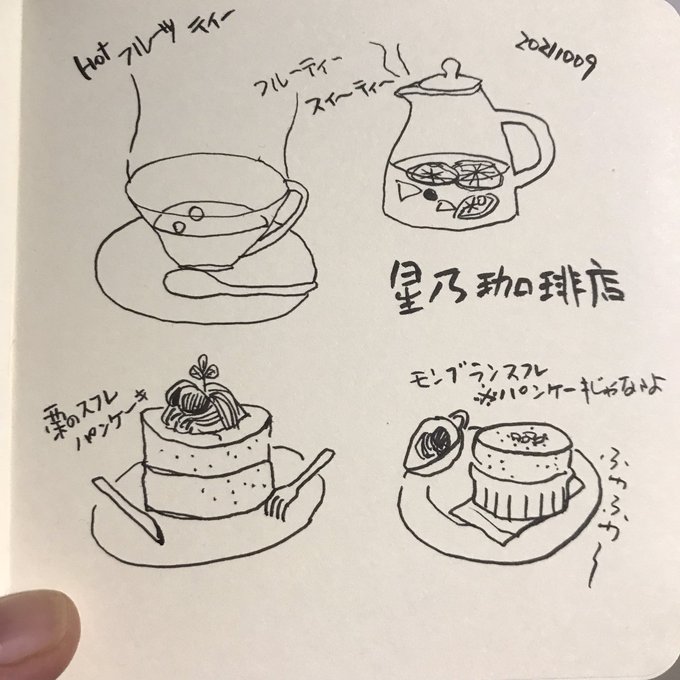 Hot フルーツ ティー
フルーティー
スイーティー
20211009
星乃珈琲店
栗のスフレ
パンケーキ
モンブランスフレ
※パンケーキじゃないよ
ふわふわ〜